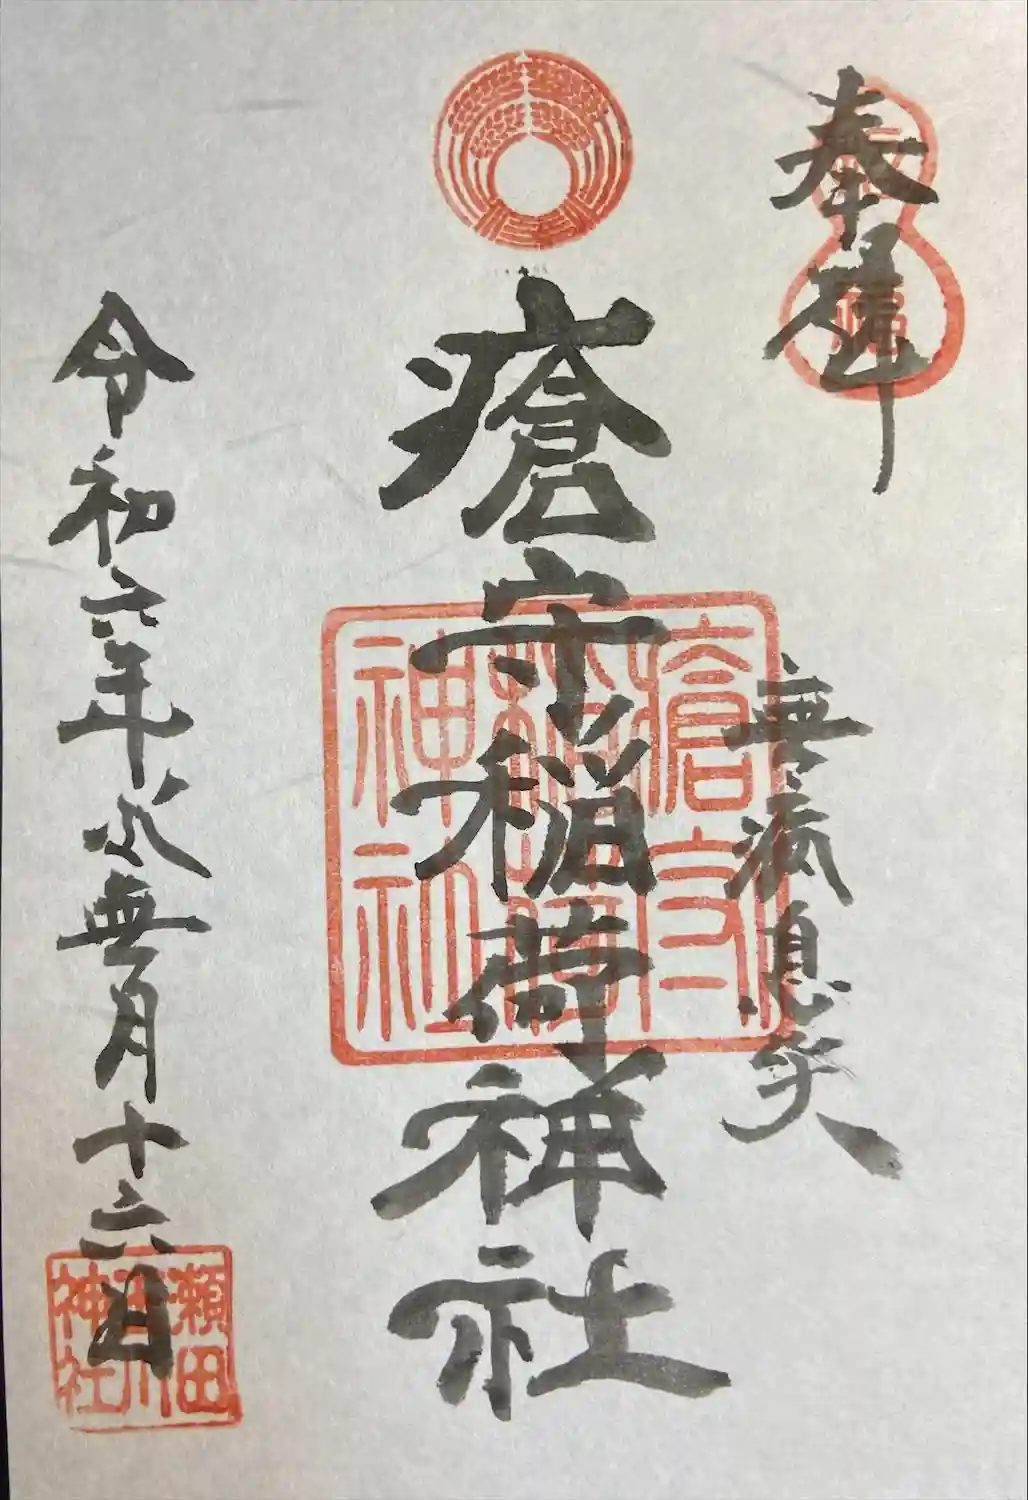 奉拝
無病息災
瘡守稲荷神社
瘡守
稲荷
神社
令和六年水無月十六日
瀬田
玉川
神社